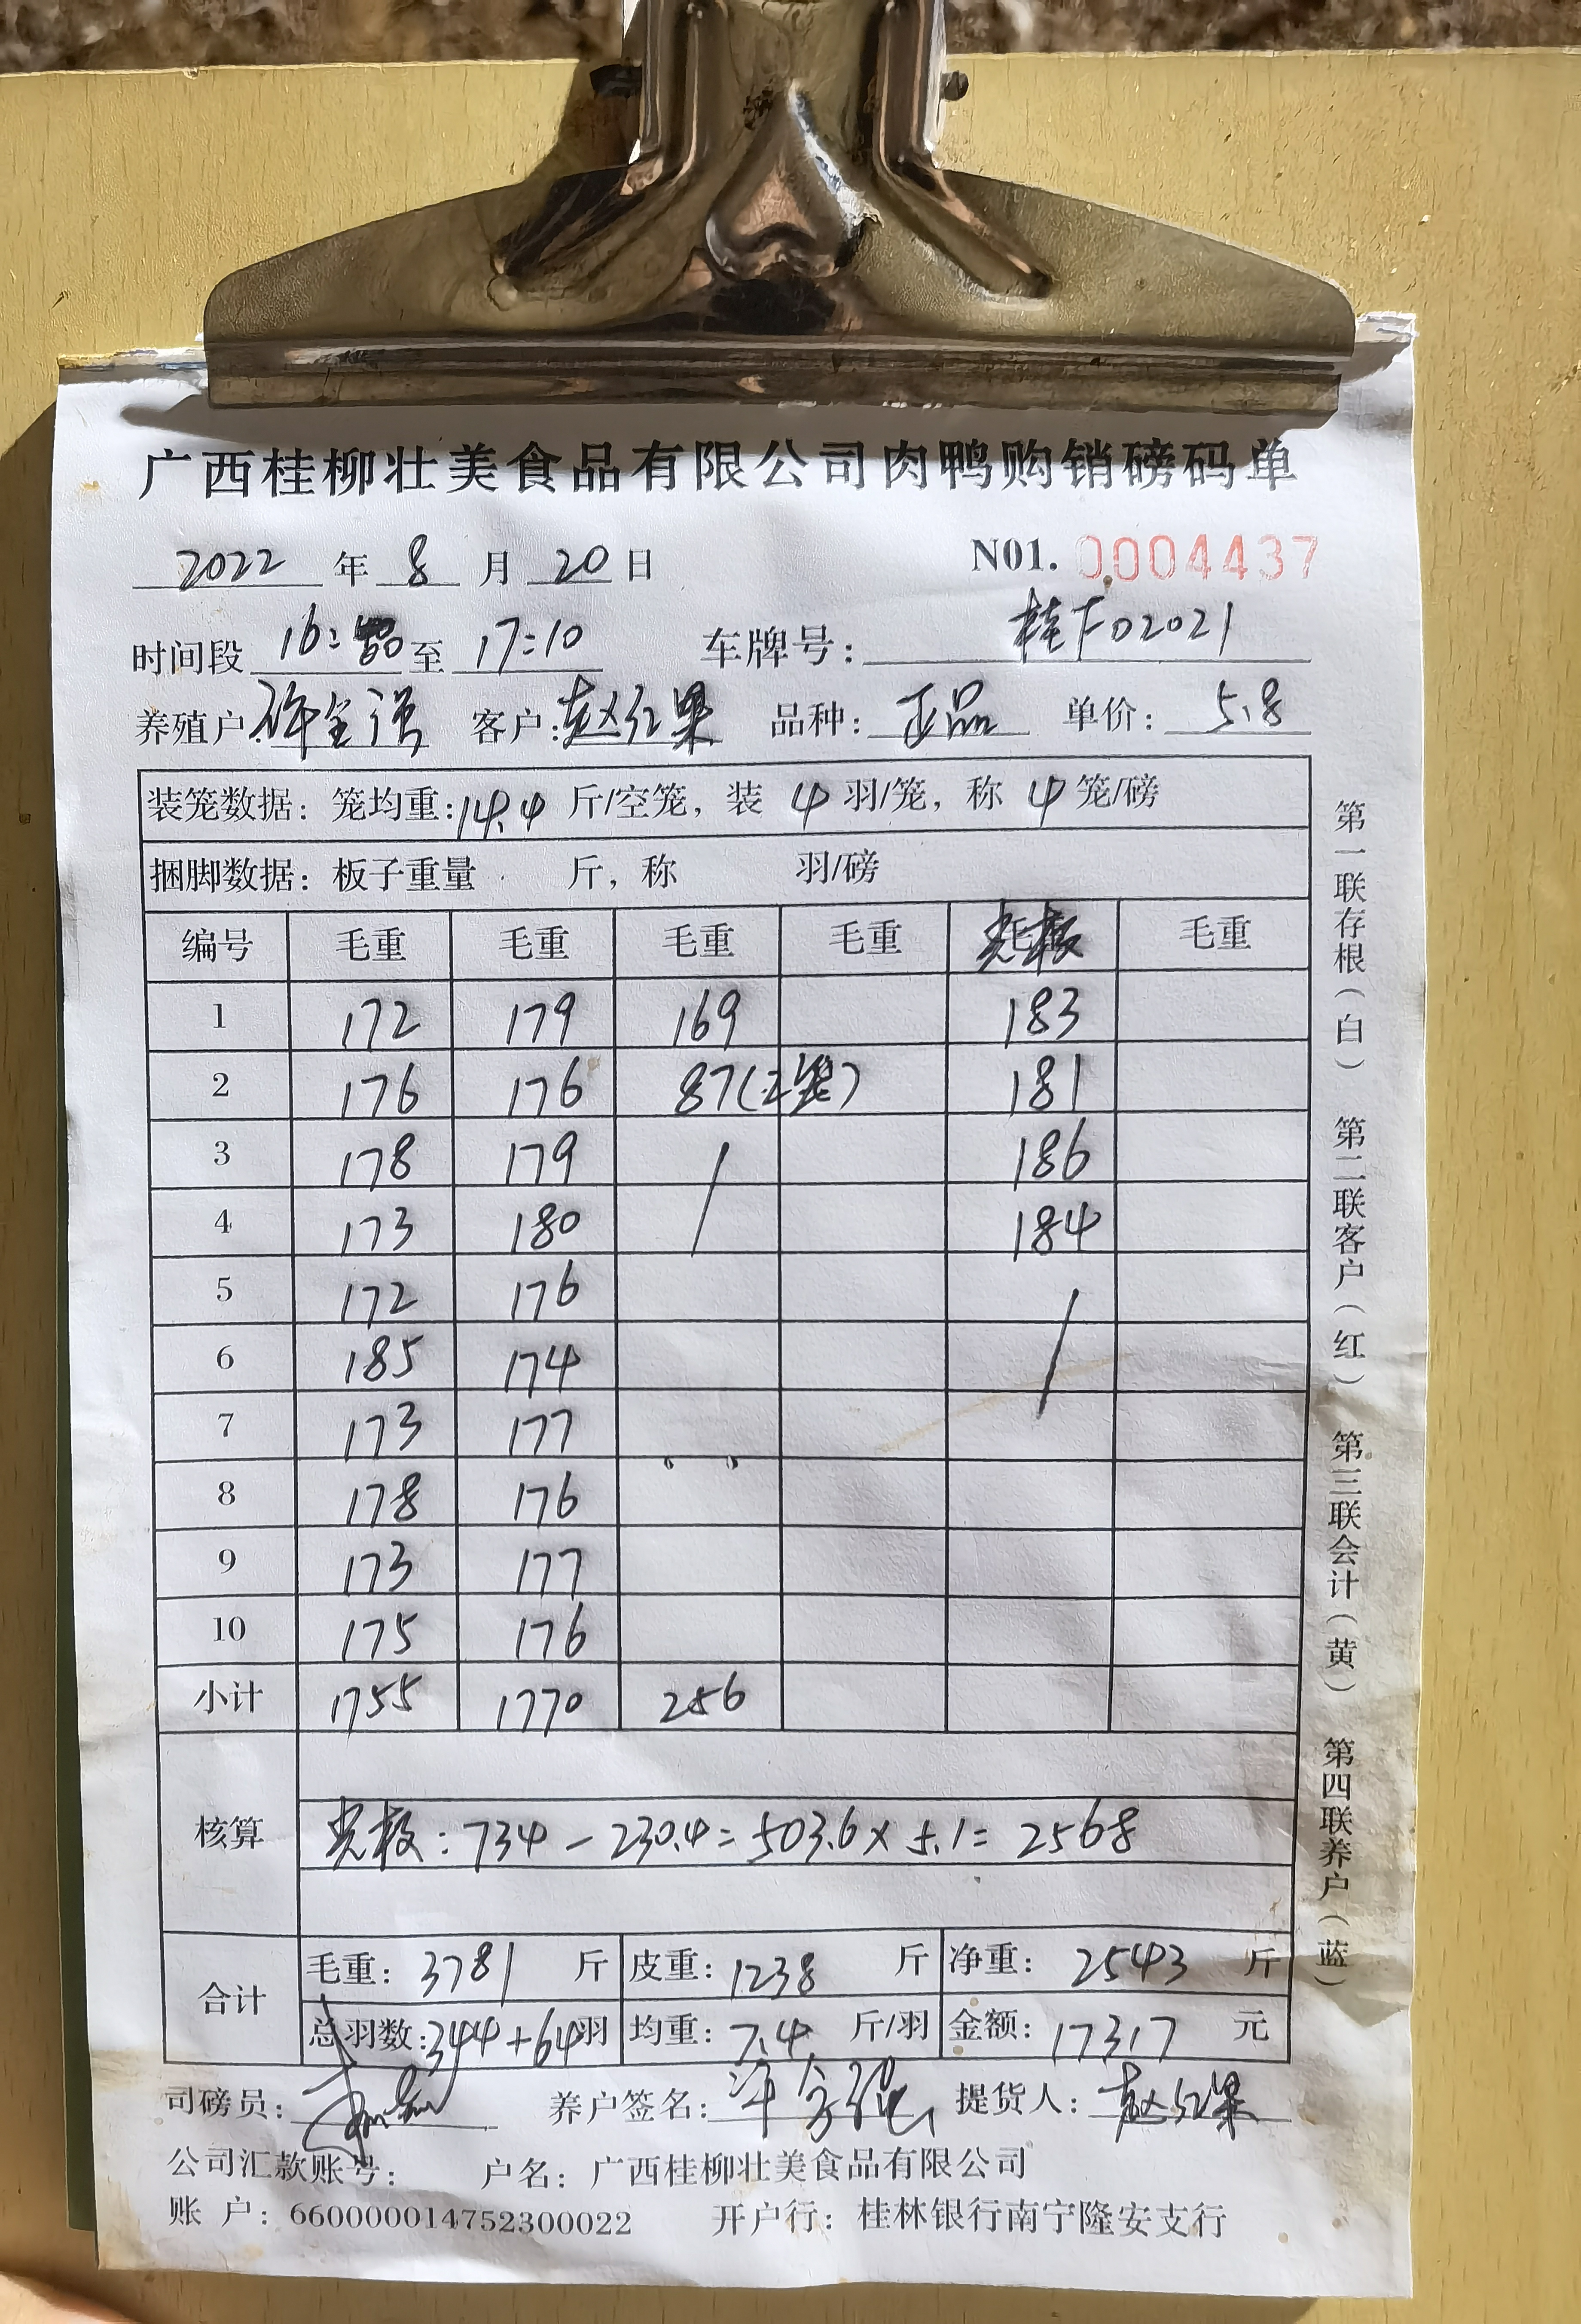 广西桂柳壮美食品有限公司肉鸭购销磅码单
2022 年 8 月 20 日 N01. 0004437
时间段 16: 至 17:10 车牌号: 桂F02021
养殖户: 许全强 客户: 赵红果 品种: 正品 单价: 5.8
装笼数据: 笼均重: 14.4 斤/空笼, 装 4 羽/笼, 称 4 笼/磅
捆脚数据: 板子重量 斤, 称 羽/磅
编号 毛重 毛重 毛重 毛重 光板 毛重
1 172 179 169 183
2 176 176 87(2笼) 181
3 178 179 / 186
4 173 180 184
5 172 176 /
6 185 174
7 173 177
8 178 176
9 173 177
10 175 176
小计 1755 1770 256
核算 光板: 734 - 230.4 = 503.6 x 5.1 = 2568
合计 毛重: 3781 斤 皮重: 1238 斤 净重: 2543 斤
总羽数: 344+64 羽 均重: 7.4 斤/羽 金额: 17317 元
司磅员: 养户签名: 许全强 提货人: 赵红果
公司汇款账号: 户名: 广西桂柳壮美食品有限公司
账 户: 660000014752300022 开户行: 桂林银行南宁隆安支行
第一联存根(白) 第二联客户(红) 第三联会计(黄) 第四联养户(蓝)